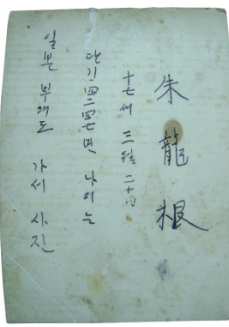 朱龍根
十七세 三월 二十四
단기 四二四七년 나이는
일본 부개도 가서 사진